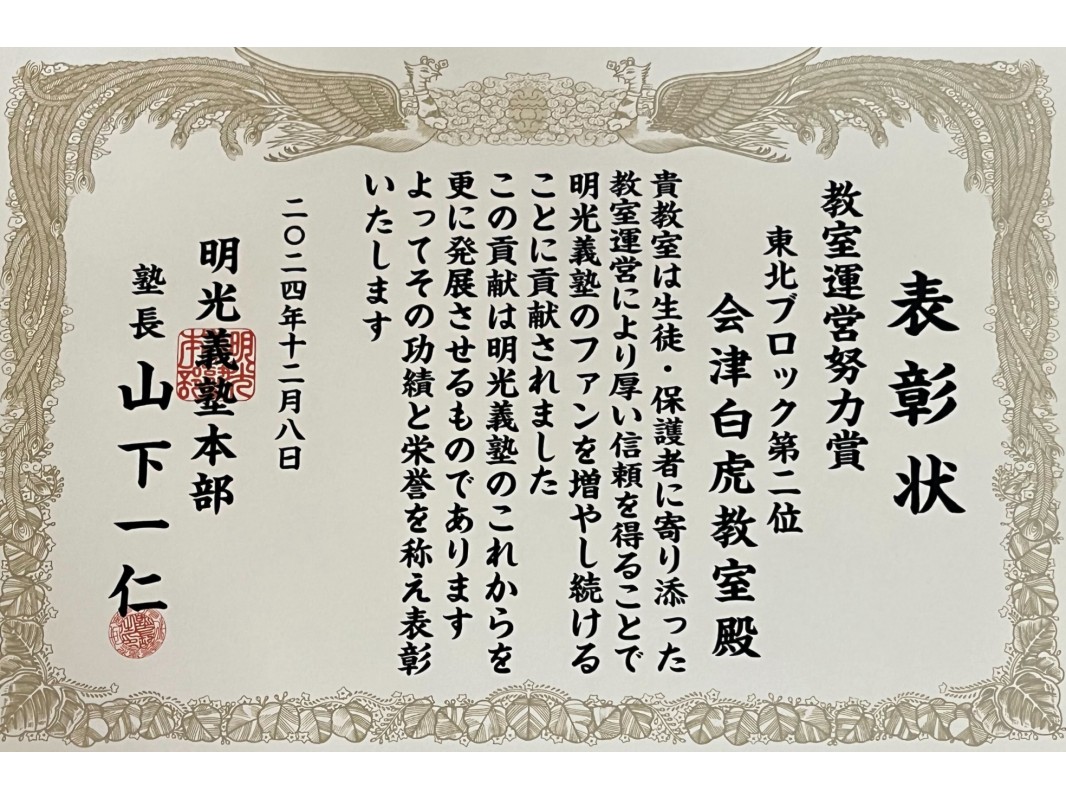 表彰状
教室運営努力賞
東北ブロック第二位
会津白虎教室殿
貴教室は生徒・保護者に寄り添った
教室運営により厚い信頼を得ることで
明光義塾のファンを増やし続ける
ことに貢献されました
この貢献は明光義塾のこれからを
更に発展させるものであります
よってその功績と栄誉を称え表彰
いたします
二〇二四年十二月八日
明光義塾本部
塾長 山下一仁